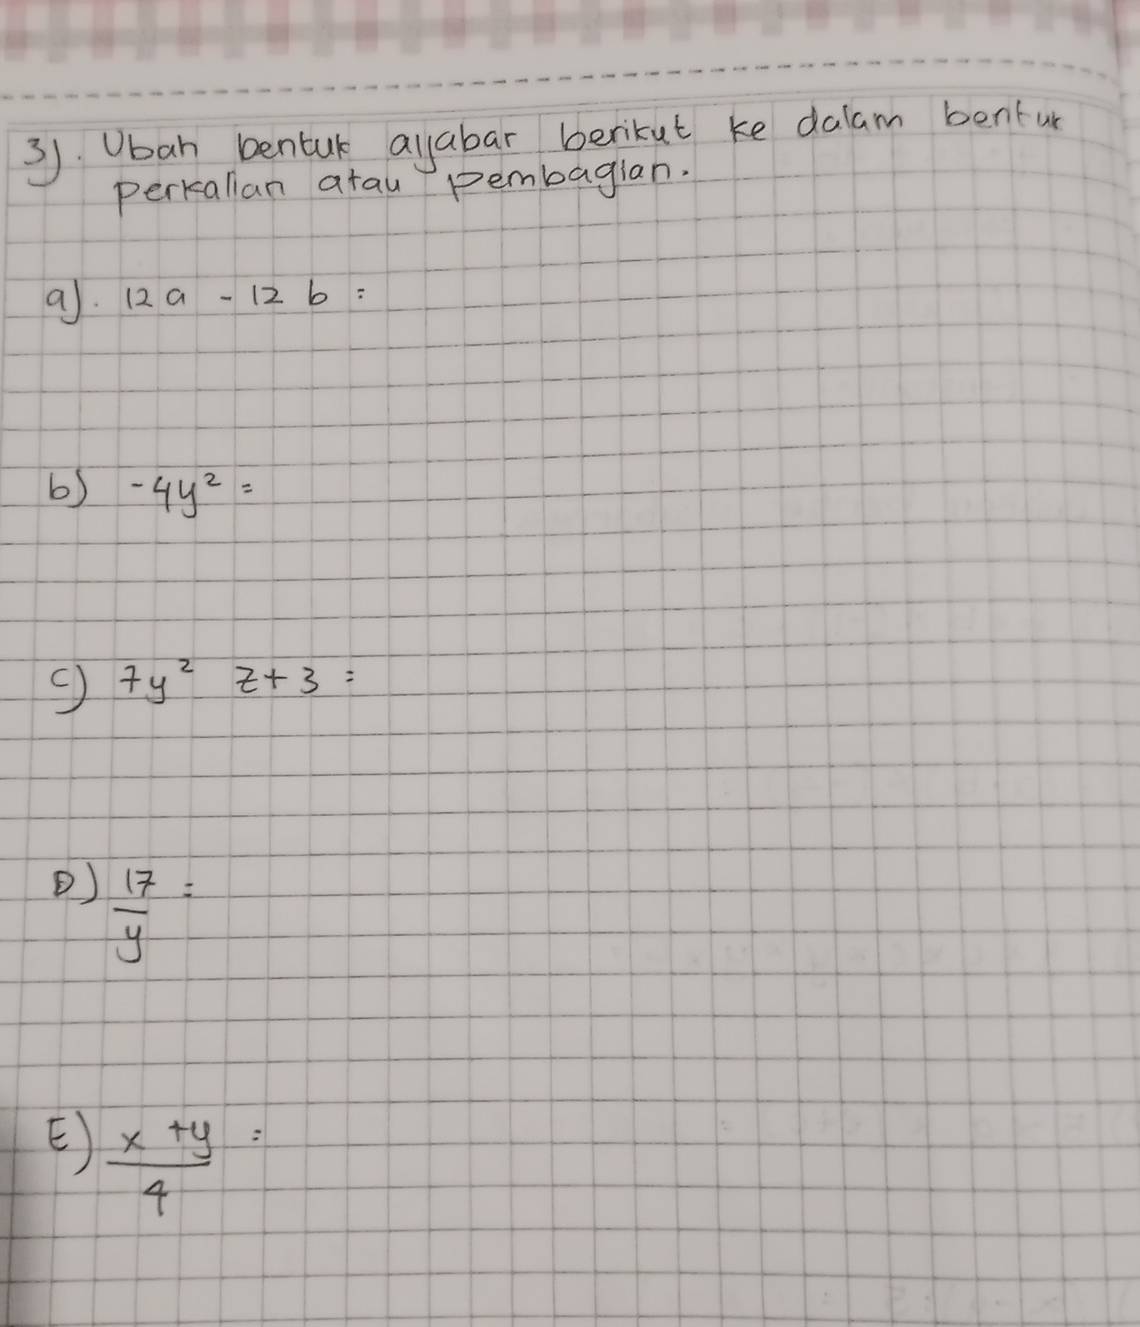 3). Ubah bentuk aljabar berikut ke dalam bentuk
perkalian atau pembagian.
a). 12 a - 12 b =
b) -4y² =
c) 7y² z + 3 =
D) 17/y =
E) x + y / 4 =